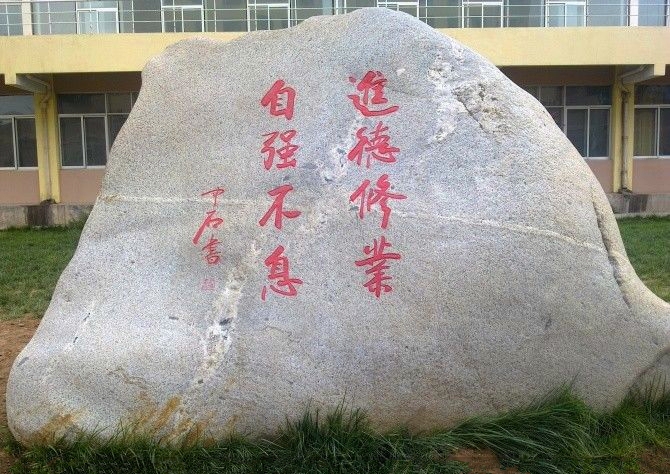 進德修业
自强不息
中石書